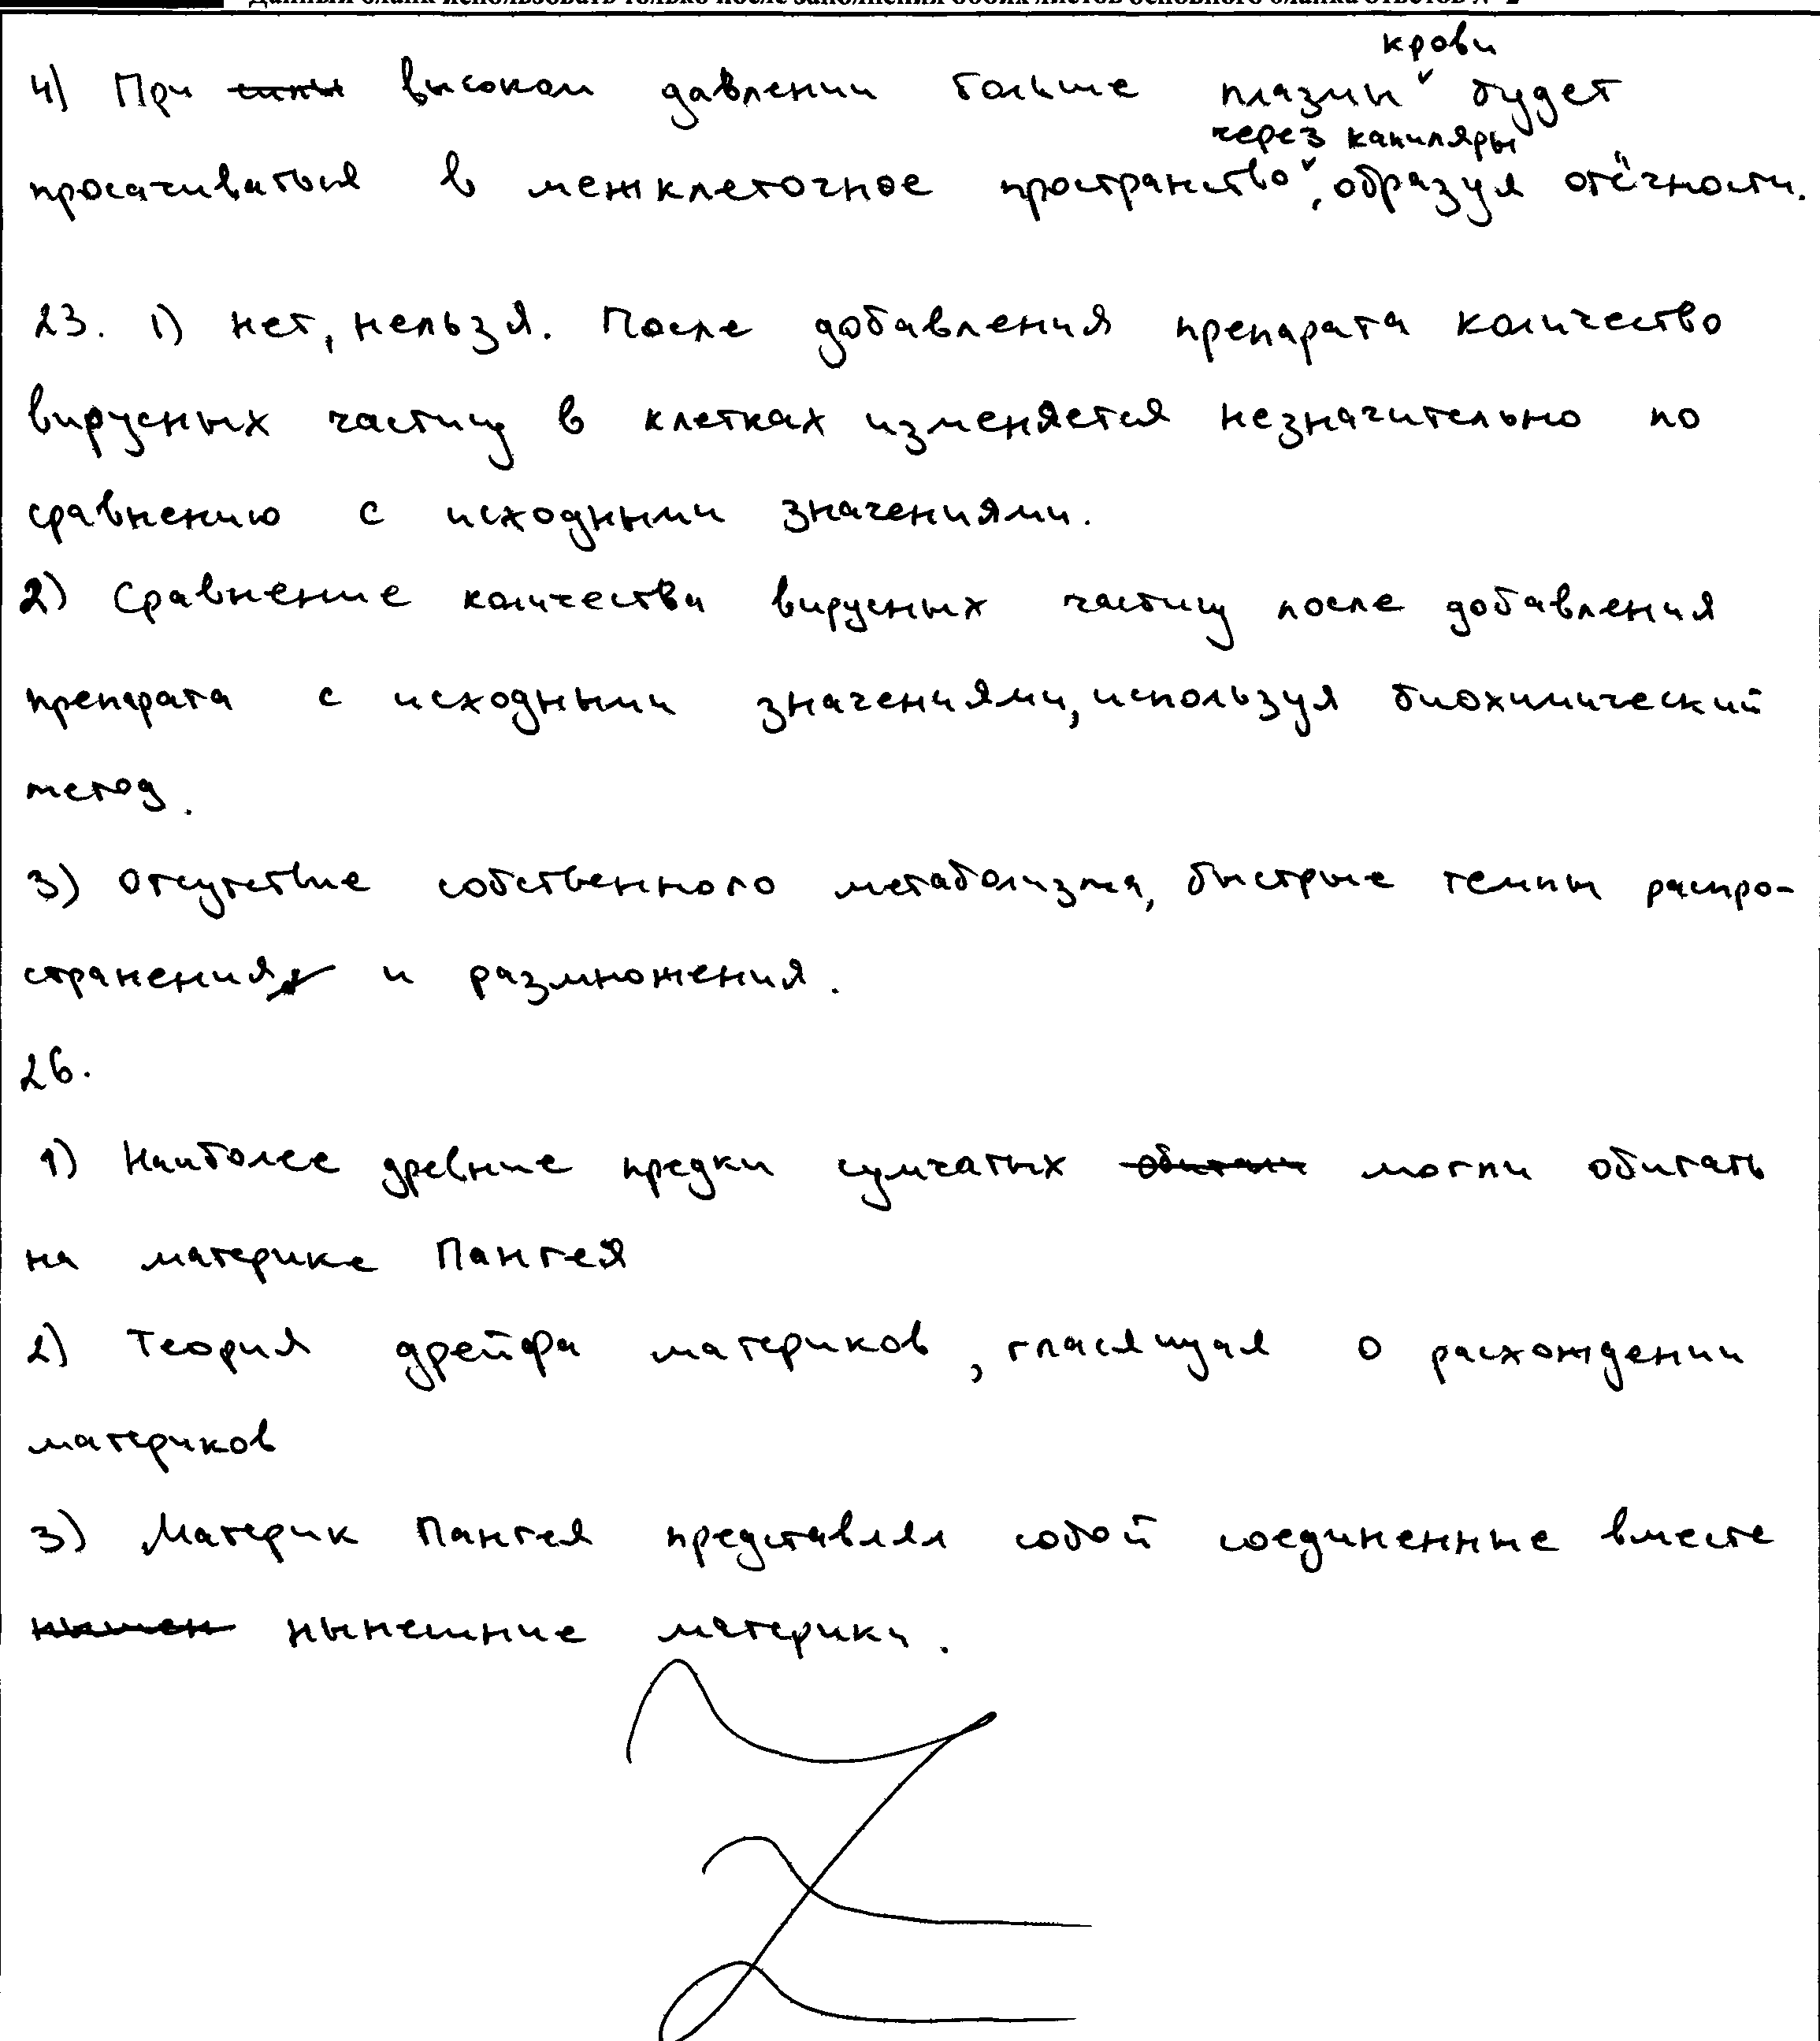 Данный бланк использовать только после заполнения обоих листов основного бланка ответов № 2
крови
4) При высоком давлении больше плазмы будет
через капиляры
просачиваться в межклеточное пространство, образуя отёчности.
23. 1) нет, нельзя. После добавления препарата количество
вирусных частиц в клетках изменяется незначительно по
сравнению с исходными значениями.
2) Сравнение количества вирусных частиц после добавления
препарата с исходными значениями, используя биохимический
метод.
3) Отсутствие собственного метаболизма, быстрые темпы распро-
странения и размножения.
26.
1) Наиболее древние предки сумчатых обитали могли обитать
на материке Пангея
2) Теория дрейфа материков, гласящая о расхождении
материков
3) Материк Пангея представлял собой соединенные вместе
нынешние материки.